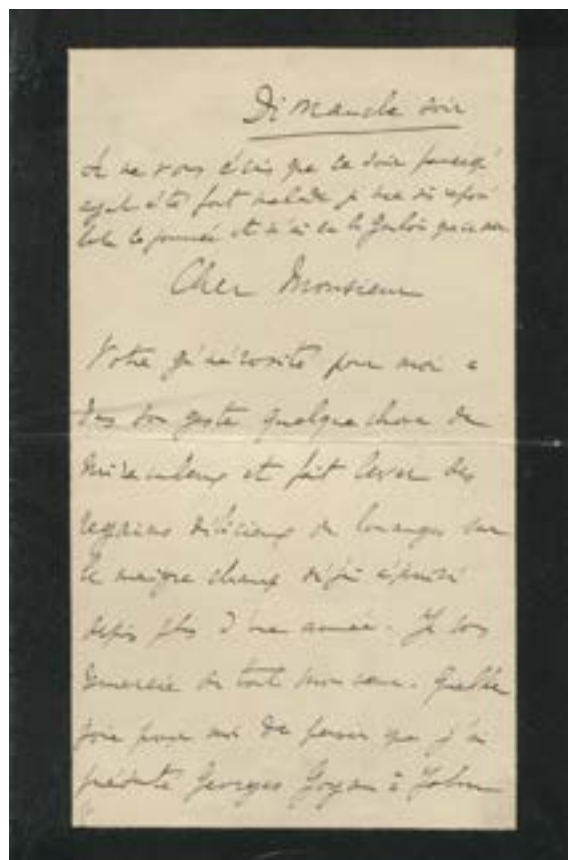 Dimanche soir
Je ne vous écris que ce soir parce qu'
ayant été fort malade je me suis reposé
toute la journée et n'ai eu le Gaulois que ce soir
Cher Monsieur
Votre générosité pour moi a
dans son geste quelque chose de
miraculeux et fait lever des
regains délicieux de louanges sur
le maigre champ déjà épuisé
depuis plus d'une année. Je vous
remercie de tout mon cœur. Quelle
joie pour moi de penser que j'ai
présenté Georges Goyau à John